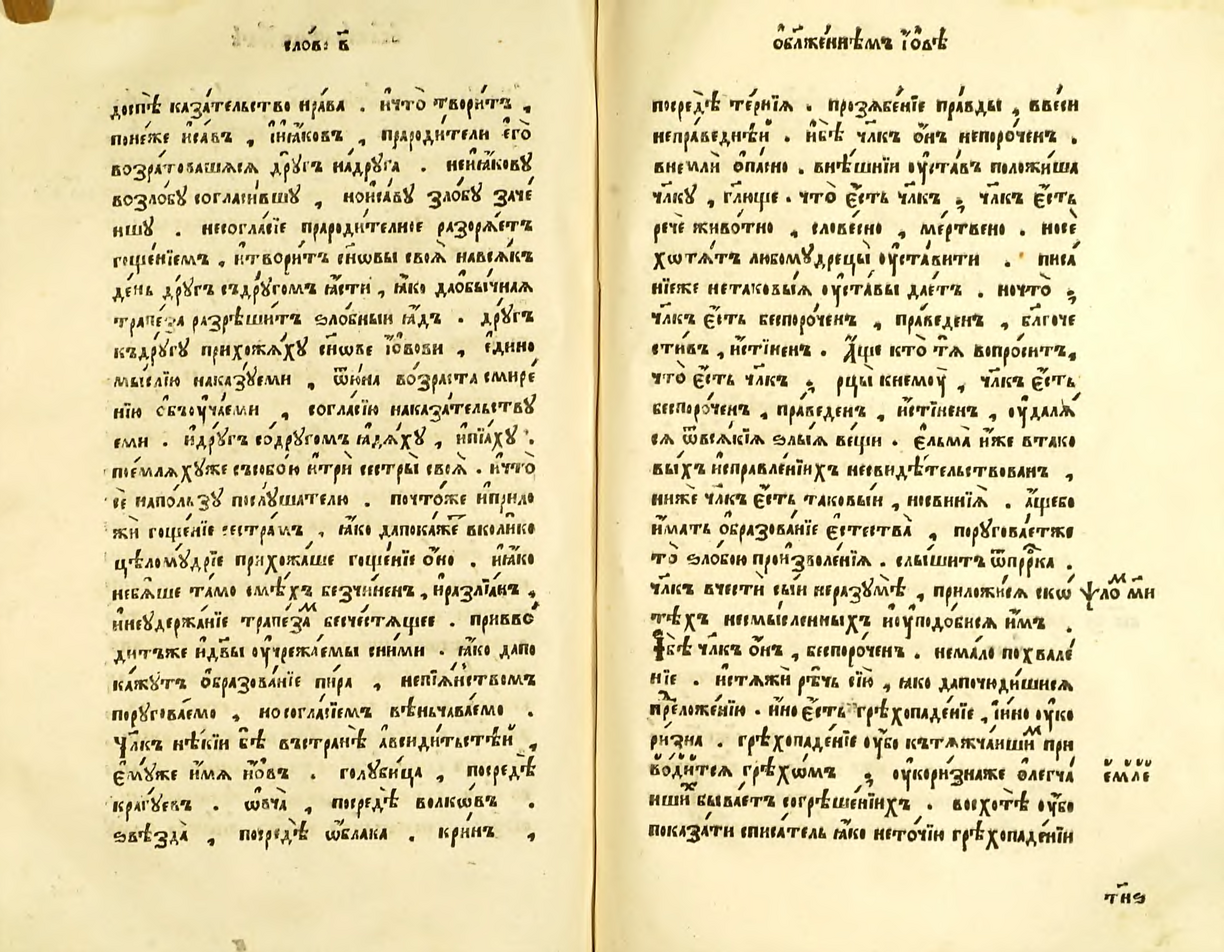 сло́в: в҃
доспѣ̀ каза́тельство нра́ва . и҆что̀ твори́тъ ,
поне́же и҆са́въ , і҆и҆а́ковъ , прароди́тели є҆го̀
возратова́шася дру́гъ нѧдру́га . неи҆ꙗ́кову
возло́бу согласи́вшу , нои҆са́ву зло́бу заче́
ншу . несогла́сїе прароди́телнее разорѧ́етъ
гоще́нїемъ , и҆твори́тъ сн҃овы своѧ̀ навсѧ́къ
де́нь дру́гъ съдру́гомъ ꙗ҆́сти , ꙗ҆́ко даѻбы́чная
трапе́за разрѣши́тъ ѕло́бныи ꙗ҆́дъ . дру́гъ
къдру́гу прихожа́ху сн҃ове і҆́овови , є҆ди́но
мы́слїю наказу́еми , ѿю́на во́зраста смире́
нїю ѻ҆бъоуча́еми , согла́сїю наказа́тельству
еми . и҆дру́гъ содру́гомъ ꙗ҆дѧ́ху , и҆пїѧ́ху .
пое́мляхуже съсобо́ю и҆трѝ сестры̀ своѧ̀ . и҆что̀
сѐ напо́льзу послу́шателю . почто́же и҆прило
жѝ гоще́нїе сестра́мъ , ꙗ҆́ко дапока́жетъ вколи́ко
цѣломꙋ́дрїе прихожа́ше гоще́нїе ѻ҆́но . и҆ꙗ҆́ко
небѧ́ше та́мо смѣ́хъ безчи́ненъ , и҆разлїѧ́нъ ,
и҆неудержа́нїе трапе́замъ бесче́стѧщее . приво́
ди́тъже и҆дв҃ы оу҆чрежа́емы сни́ми . ꙗ҆́ко дапо
ка́жутъ ѻ҆бразова́нїе пи́ра , непїѧ́нствомъ
поруго́ваемо , носогла́сїемъ вѣньчава́емо .
Ч҃лкъ нѣ́кїи бѣ̀ въстранѣ̀ а҆всиди́тьстѣй ,
є҆му́же и҆́мя и҆́ѻвъ . голуби́ца , посредѣ̀
крагу́евъ . ѡ҆вча̀ , посредѣ̀ волко́въ .
ѕвѣзда̀ , посредѣ̀ ѡ҆́блака . кри́нъ ,
ѻ҆блаже́ннѣмъ і҆́овѣ
посредѣ̀ те́рнїя . прозѧбе́нїе пра́вды , ввеси
непра́веднѣй . и҆бѣ̀ чл҃къ ѻ҆́нъ непоро́ченъ .
внемли̇̀ ѻ҆па́сно . внѣ́шнїи оу҆ста́въ положи́ша
чл҃ку , гл҃юще . что̀ є҆́сть чл҃къ ; чл҃къ є҆́сть
речѐ живо́тно , слове́сно , ме́ртвено . носѐ
хотѧ́тъ любому́дрецы оу҆ста́вити . писа́
нїеже нетаковы́я оу҆ста́вы дае́тъ . ночто̀ ;
чл҃къ є҆́сть беспоро́ченъ , пра́веденъ , бл҃гоче
сти́въ , и҆́стиненъ . А҆́ще кто̀ тѧ̀ вопроси́тъ,
что̀ є҆́сть чл҃къ ; рцы̀ кнему̀ , чл҃къ є҆́сть
беспоро́ченъ , пра́веденъ , и҆́стиненъ , оу҆далѧ́
ся ѿвсѧ́кїя ѕлы́я ве́щи . є҆льма̀ и҆́же втако
вы́хъ и҆справле́нїихъ несвидѣ́тельствованъ ,
нижѐ чл҃къ є҆́сть таковы́и , носвинїѧ̀ . а҆́щебо
и҆́мать ѻ҆бразова́нїе є҆стества̀ , поругова́етже
то̀ ѕло́бою произволе́нїя . слы́шитъ ѿпрⷪ҇рка .
чл҃къ вче́сти сы́и неразумѣ̀ , приложи́ся скѡ
ѱало́м ми
тѣ́хъ несмы́сленныхъ и҆оуподо́бися и҆̀мъ .
Ꙗ҆бѣ̀ чл҃къ ѻ҆́нъ , беспоро́ченъ . нема́ло похвале́
нїе . и҆стѧжѝ рѣ́чь сїю̀ , ꙗ҆́ко дапочюди́шися
преложе́нїю . и҆́но є҆́сть грѣхопаде́нїе , и҆и҆́но оу҆ко
ри́зна . грѣхопаде́нїе оу҆́бо кътѧжча́ишимъ при
во́дится грѣхѡ́мъ ; оу҆кори́знаже ѻ҆легча́
є҆́мле
ишихъ быва́етъ согрѣше́нїихъ . восхотѣ̀ оу҆́бо
показа́ти списа́тель ꙗ҆́ко нето́чїю грѣхопаде́нїи
тн҃ѕ